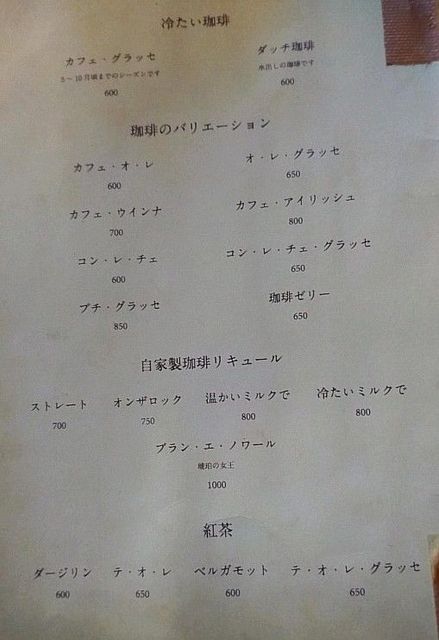 冷たい珈琲
カフェ・グラッセ ダッチ珈琲
5～10月頃までのシーズンです 水出しの珈琲です
600 600
珈琲のバリエーション
カフェ・オ・レ オ・レ・グラッセ
600 650
カフェ・ウインナ カフェ・アイリッシュ
700 800
コン・レ・チェ コン・レ・チェ・グラッセ
600 650
プチ・グラッセ 珈琲ゼリー
850 650
自家製珈琲リキュール
ストレート オンザロック 温かいミルクで 冷たいミルクで
700 750 800 800
ブラン・エ・ノワール
琥珀の女王
1000
紅茶
ダージリン テ・オ・レ ベルガモット テ・オ・レ・グラッセ
600 650 600 650